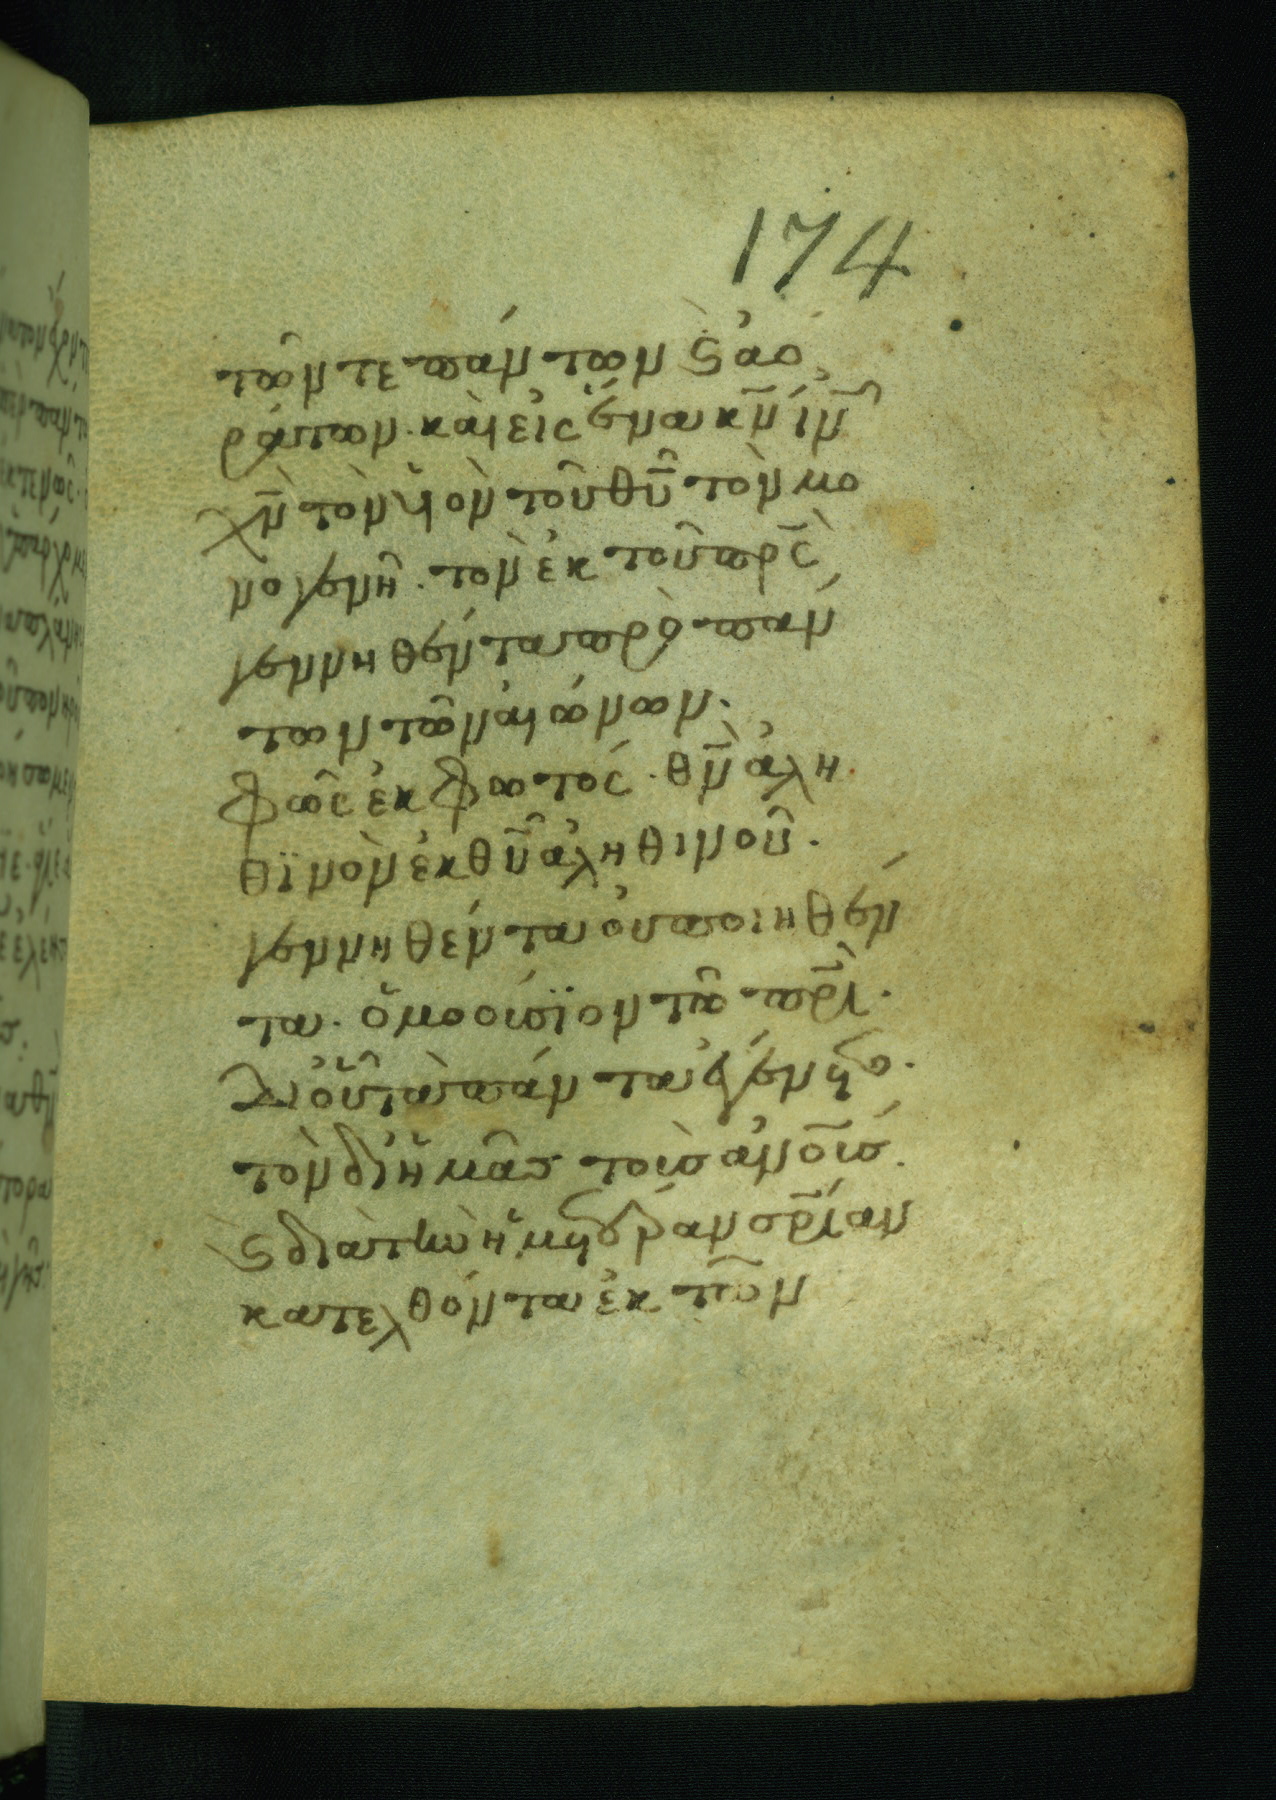 174
τῶν τε πάντων ϗ ἀο
ράτων· καὶ εἰς ἕνα κ̅ν̅ ἰ̅ν̅
χ̅ν̅ τὸν υἱὸν τοῦ θ̅υ̅ τὸν μο
νογενῆ· τὸν ἐκ τοῦ π̅ρ̅ς̅
γεννηθέντα πρὸ πάν
των τῶν αἰώνων·
φῶς ἐκ φωτός· θ̅ν̅ ἀλη
θϊνὸν ἐκ θ̅υ̅ ἀληθινοῦ·
γεννηθέντα οὐ ποιηθέν
τα· ὁμοούσϊον τῶ π̅ρ̅ι̅·
δι οὗ τὰ πάντα ἐγένετο·
τὸν δι ἡμᾶς τοὺς ἀ̅ν̅ο̅υ̅ς̅·
ϗ διὰ τὴν ἡμετέραν σ̅ρ̅ίαν
κατελθόντα ἐκ τῶν